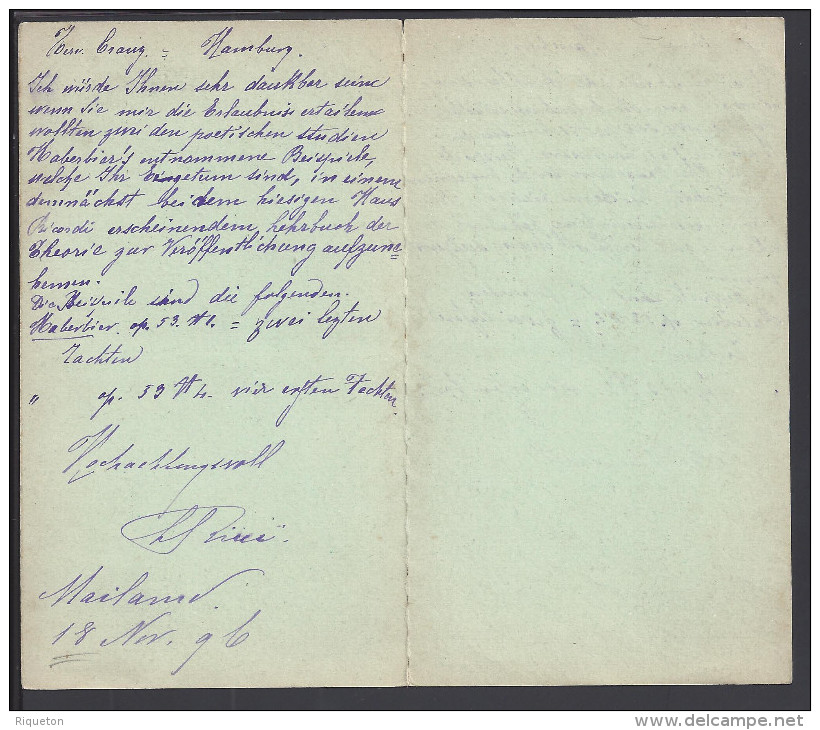 Herr Cranz. = Hamburg.
Ich würde Ihnen sehr dankbar seine
wenn Sie mir die Erlaubniss ertailen
wollten zwei den poetischen studien
Haberbier's entnommene Beispiele,
welche Ihr Eingetum sind, in einem
demnächst bei dem hiesigen Haus
Ricordi erscheinendem Lehrbuch der
Theorie zur Veröffentlichung aufzune=
hemen.
Die sind die folgenden.
Haberbier. op. 53. = zwei letzten
Tachten
" op. 53 N 4. vier ersten Tachten.
Hochachtungsvoll
Mailand.
18 Nov. 96
Riqueton
www.delcampe.net